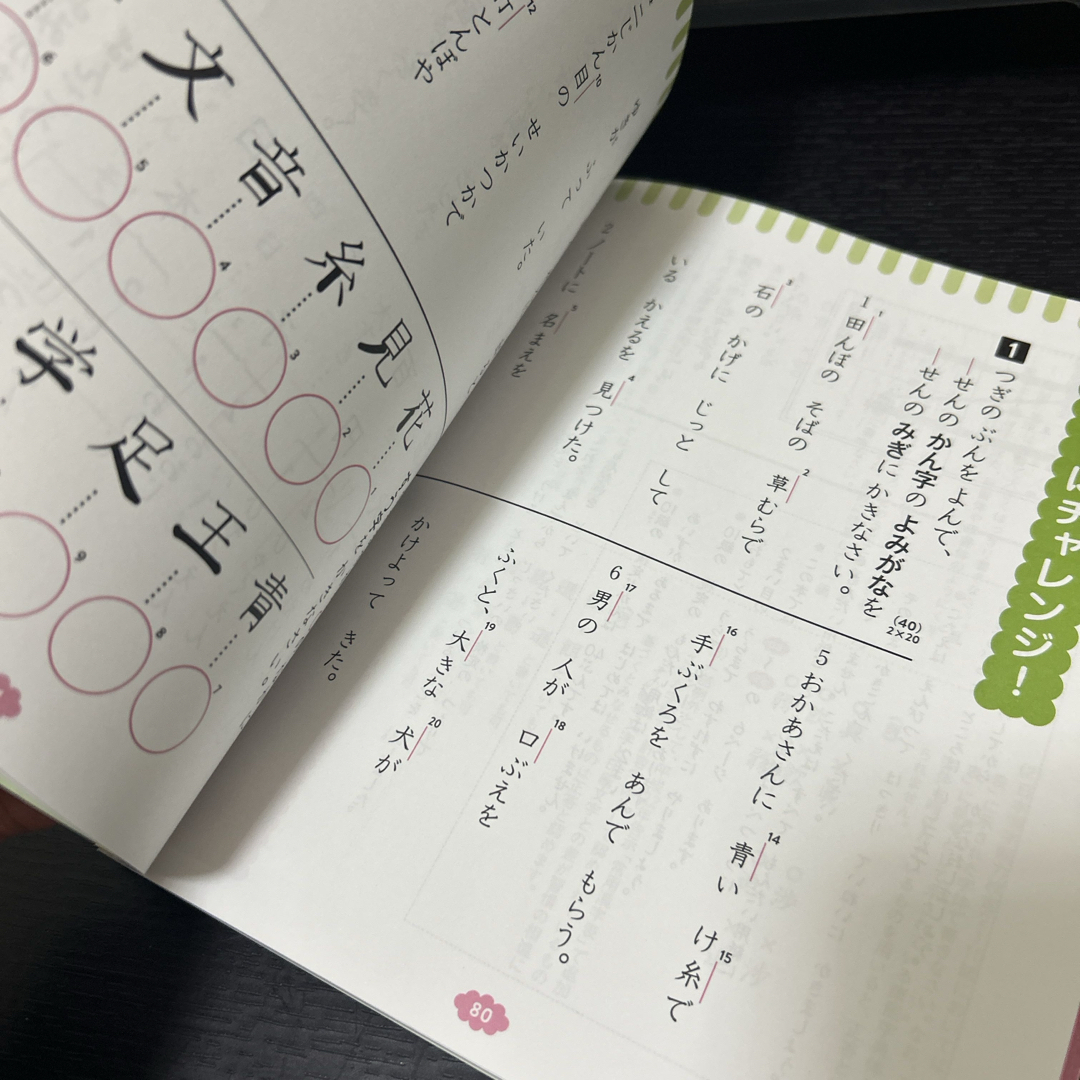 にチャレンジ!
1 つぎの ぶんを よんで、
―せんの かん字の よみがなを
―せんの みぎに かきなさい。
(40)
2×20
1 田んぼの そばの 草むらで
石の かげに じっと して
いる かえるを 見つけた。
2 ノートに 名まえを
5 おかあさんに 青い け糸で
手ぶくろを あんで もらう。
6 男の 人が 口ぶえを
ふくと、大きな 犬が
かけよって きた。
80
二じかん目の せいかつかで
とんぼや
花
見
糸
音
文
青
王
足
学